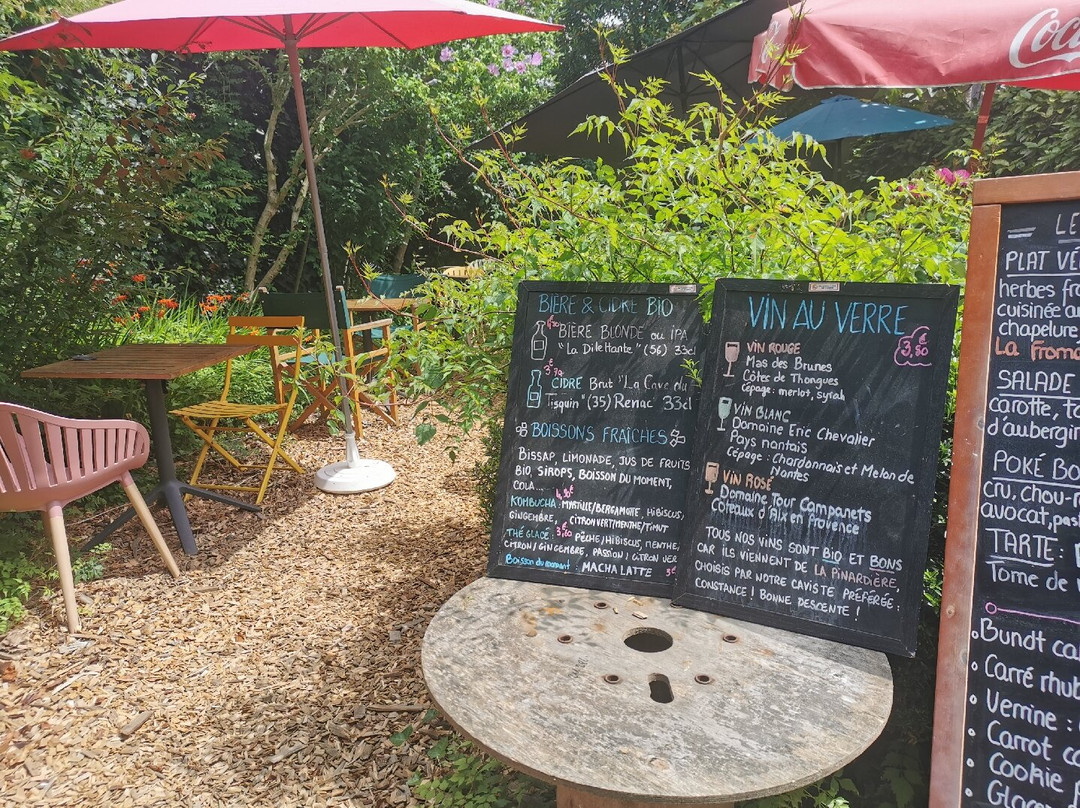 Coca
BIÈRE & CIDRE BIO
BIÈRE BLONDE OU IPA
"La Dilettante" (56) 33cl
CIDRE Brut "La Cave du
Tisquin" (35) Renac 33cl
BOISSONS FRAÎCHES
BISSAP, LIMONADE, JUS DE FRUITS
BIO, SIROPS, BOISSON DU MOMENT,
COLA...
KOMBUCHA: MYRTILLE/BERGAMOTE, HIBISCUS,
GINGEMBRE, CITRON VERT/MENTHE/TIMUT
THÉ GLACÉ: PÊCHE/HIBISCUS, MENTHE,
CITRON/GINGEMBRE, PASSION/CITRON VER
Boisson du moment: MACHA LATTE
VIN AU VERRE
3,80
VIN ROUGE
Mas des Brunes
Côtes de Thongues
Cépage: merlot, syrah
VIN BLANC
Domaine Eric Chevalier
Pays nantais
Cépage: Chardonnais et Melon de
Nantes
VIN ROSÉ
Domaine Tour Campanets
Coteaux d'Aix en Provence
TOUS NOS VINS SONT BIO ET BONS
CAR ILS VIENNENT DE LA PINARDIÈRE,
CHOISIS PAR NOTRE CAVISTE PRÉFÉRÉE:
CONSTANCE! BONNE DESCENTE!
LE
PLAT VÉ
herbes fra
cuisinée au
chapelure
La froma
SALADE
carotte, to
d'aubergin
POKÉ BO
cru, chou-r
avocat, pas
TARTE:
Tome de
Bundt ca
Carré rhub
Verrine:
Carrot c
Cookie